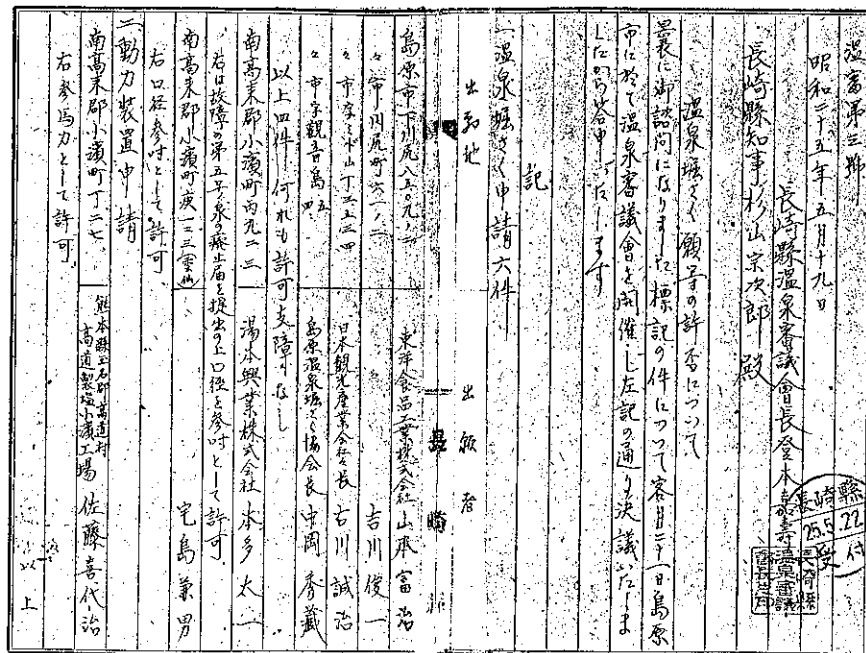 温審第三号
昭和二十五年五月十九日
長崎縣温泉審議會長登本嘉壽
長崎縣知事杉山宗次郎殿
温泉堀さく願等の許否について
曩に御諮問になりました標記の件について客月二十一日島原
市に於て温泉審議會を開催し左記の通り決議いたしま
したから答申いたします
記
一温泉堀さく申請六件
出願地 出願者
島原市下川尻八五〇九ノ 東洋食品工業株式会社 山本富治
〃市川尻町六一ノ二 吉川俊一
〃市 日本観光産業会社々長 古川誠治
〃市字観音島 島原温泉堀さく協会長 中岡秀藏
以上四件何れも許可支障なし
南高来郡小濱町丙九二三 湯本興業株式会社 本多太一
右は故障の第五号泉の廃止届を提出の上口径を参吋として許可
南高来郡小濱町庚一二三雲仙 宅島兼男
右口径参吋として許可
二動力装置申請
南高来郡小濱町丁二七 熊本縣玉名郡高道村 高道製塩小濱工場 佐藤喜代治
右参馬力として許可
以上
長崎縣
25.5.22
受付
長崎縣温泉審議會長之印